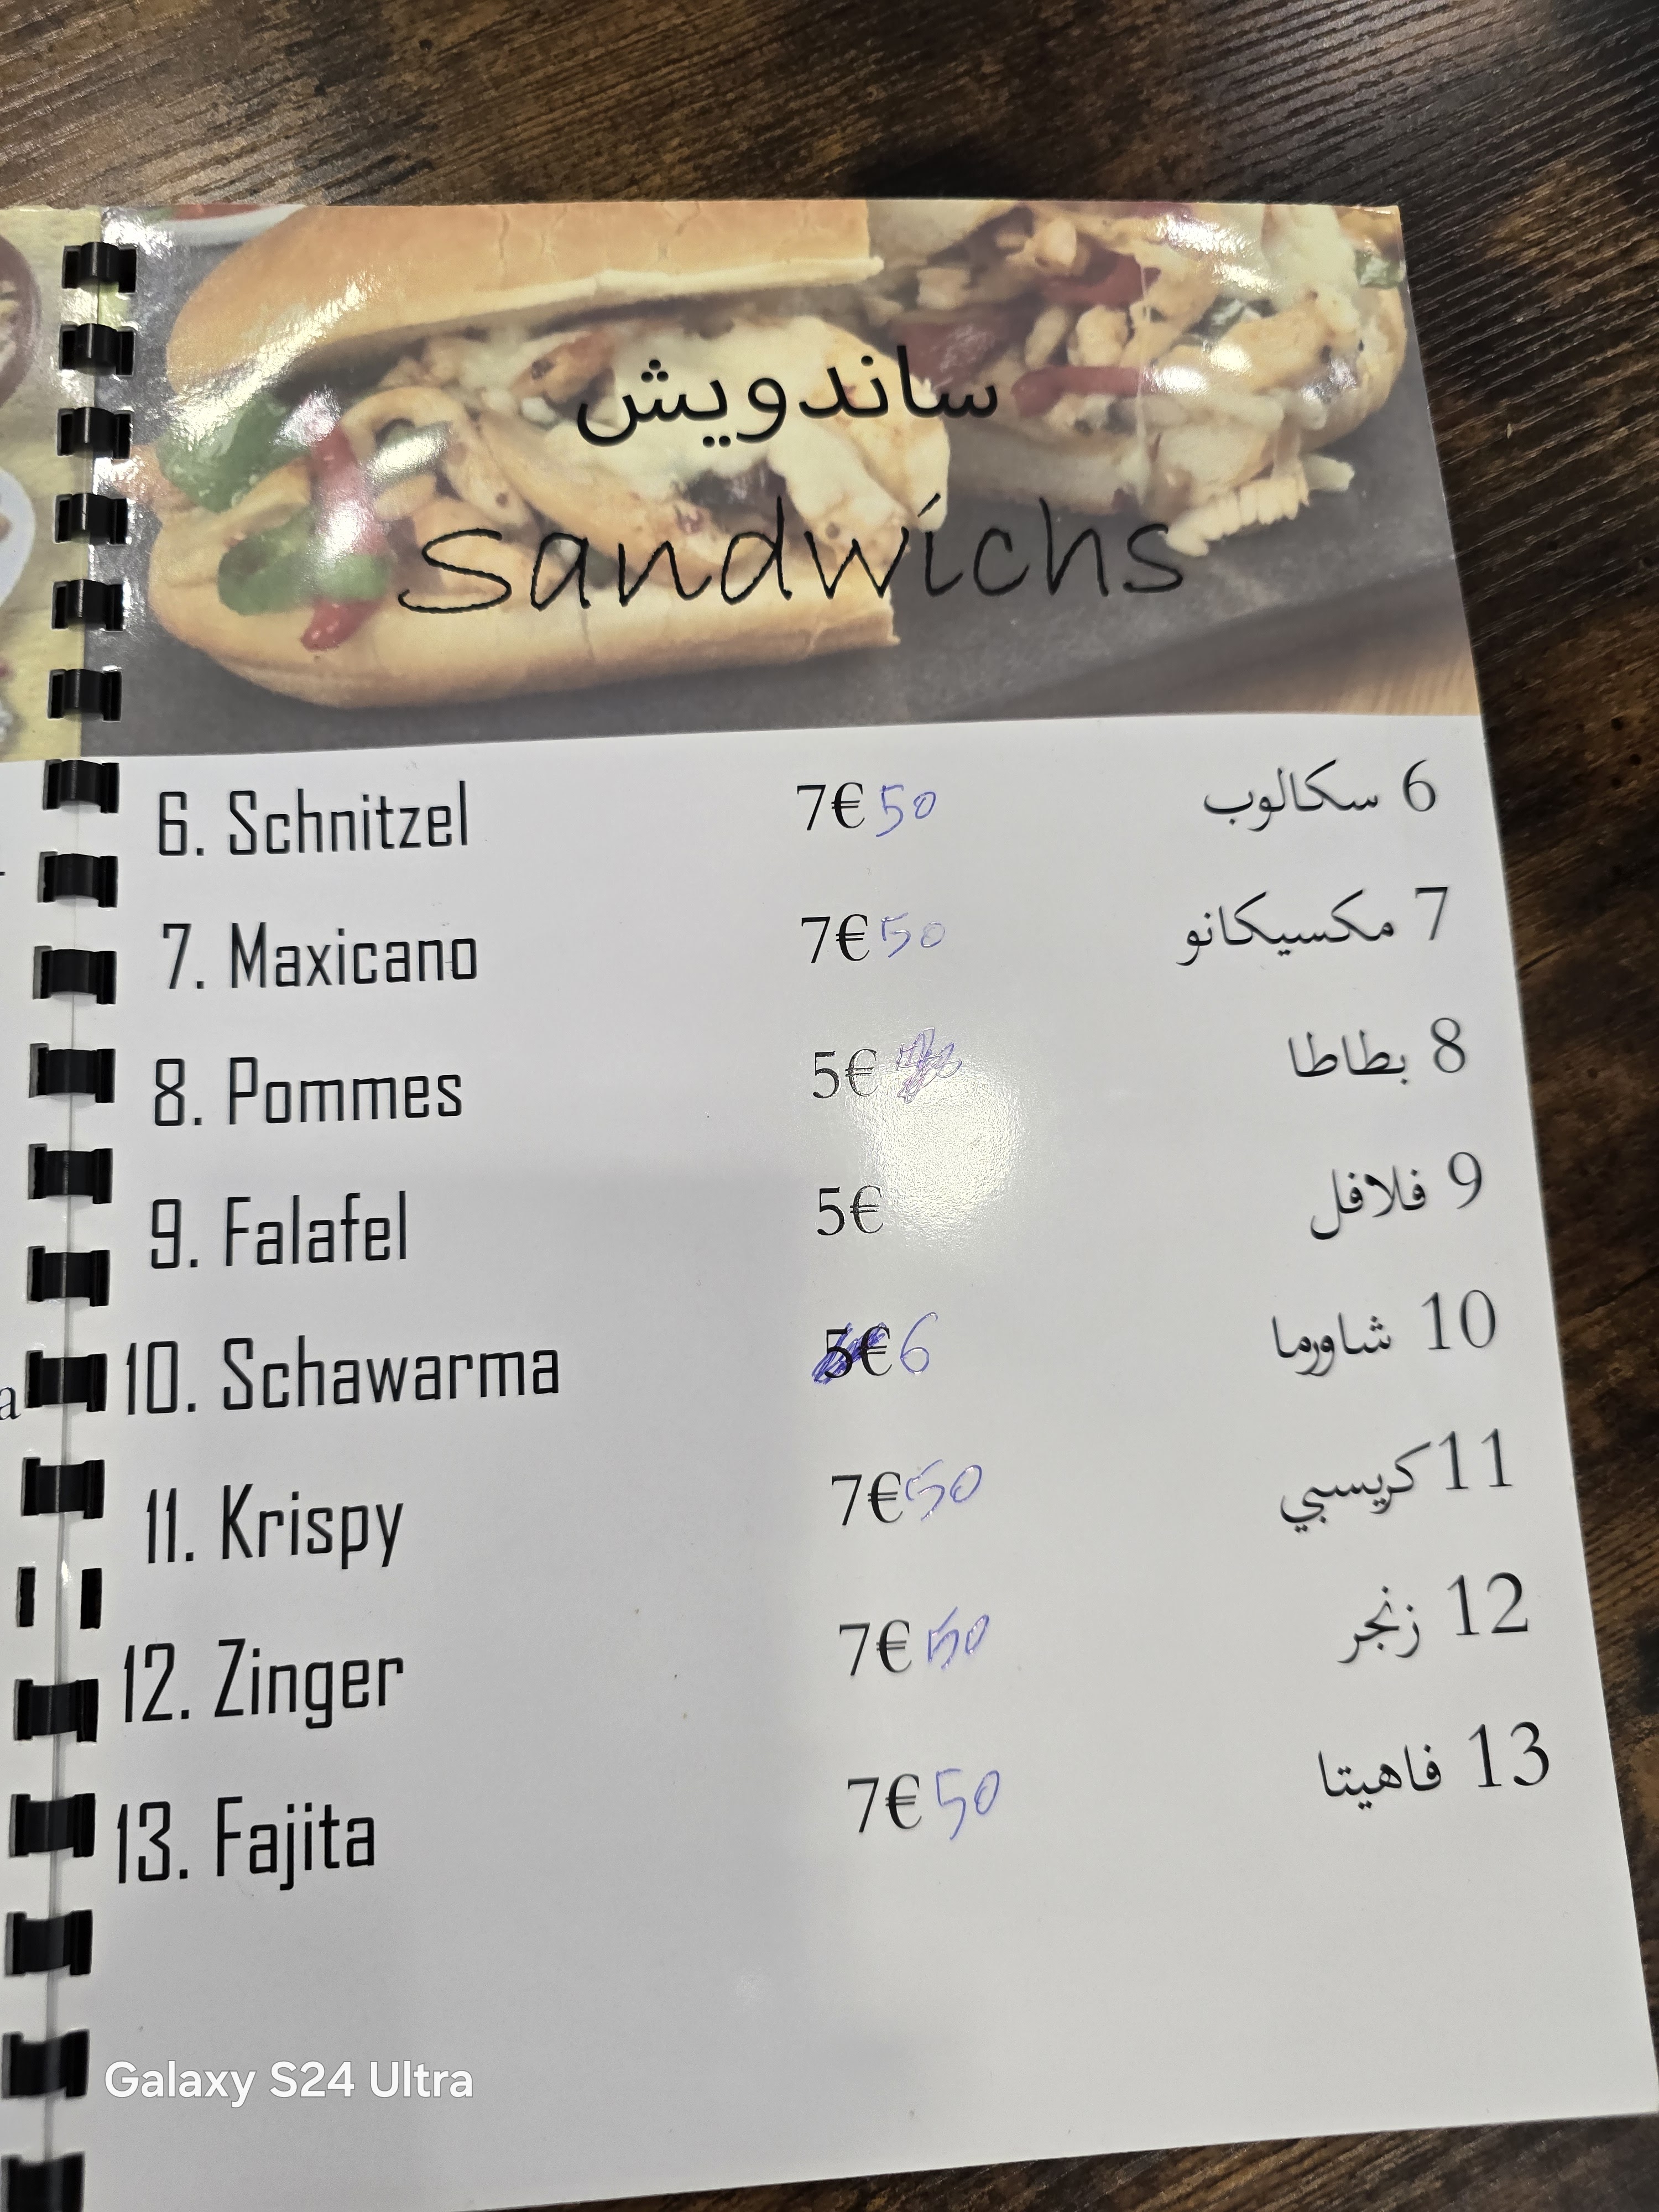 ساندويش
Sandwichs
6. Schnitzel 7€ 50 6 سكالوب
7. Maxicano 7€ 50 7 مكسيكانو
8. Pommes 5€ 8 بطاطا
9. Falafel 5€ 9 فلافل
10. Schawarma 5€ 6 10 شاورما
11. Krispy 7€ 50 11 كريسبي
12. Zinger 7€ 50 12 زنجر
13. Fajita 7€ 50 13 فاهيتا
a
Galaxy S24 Ultra